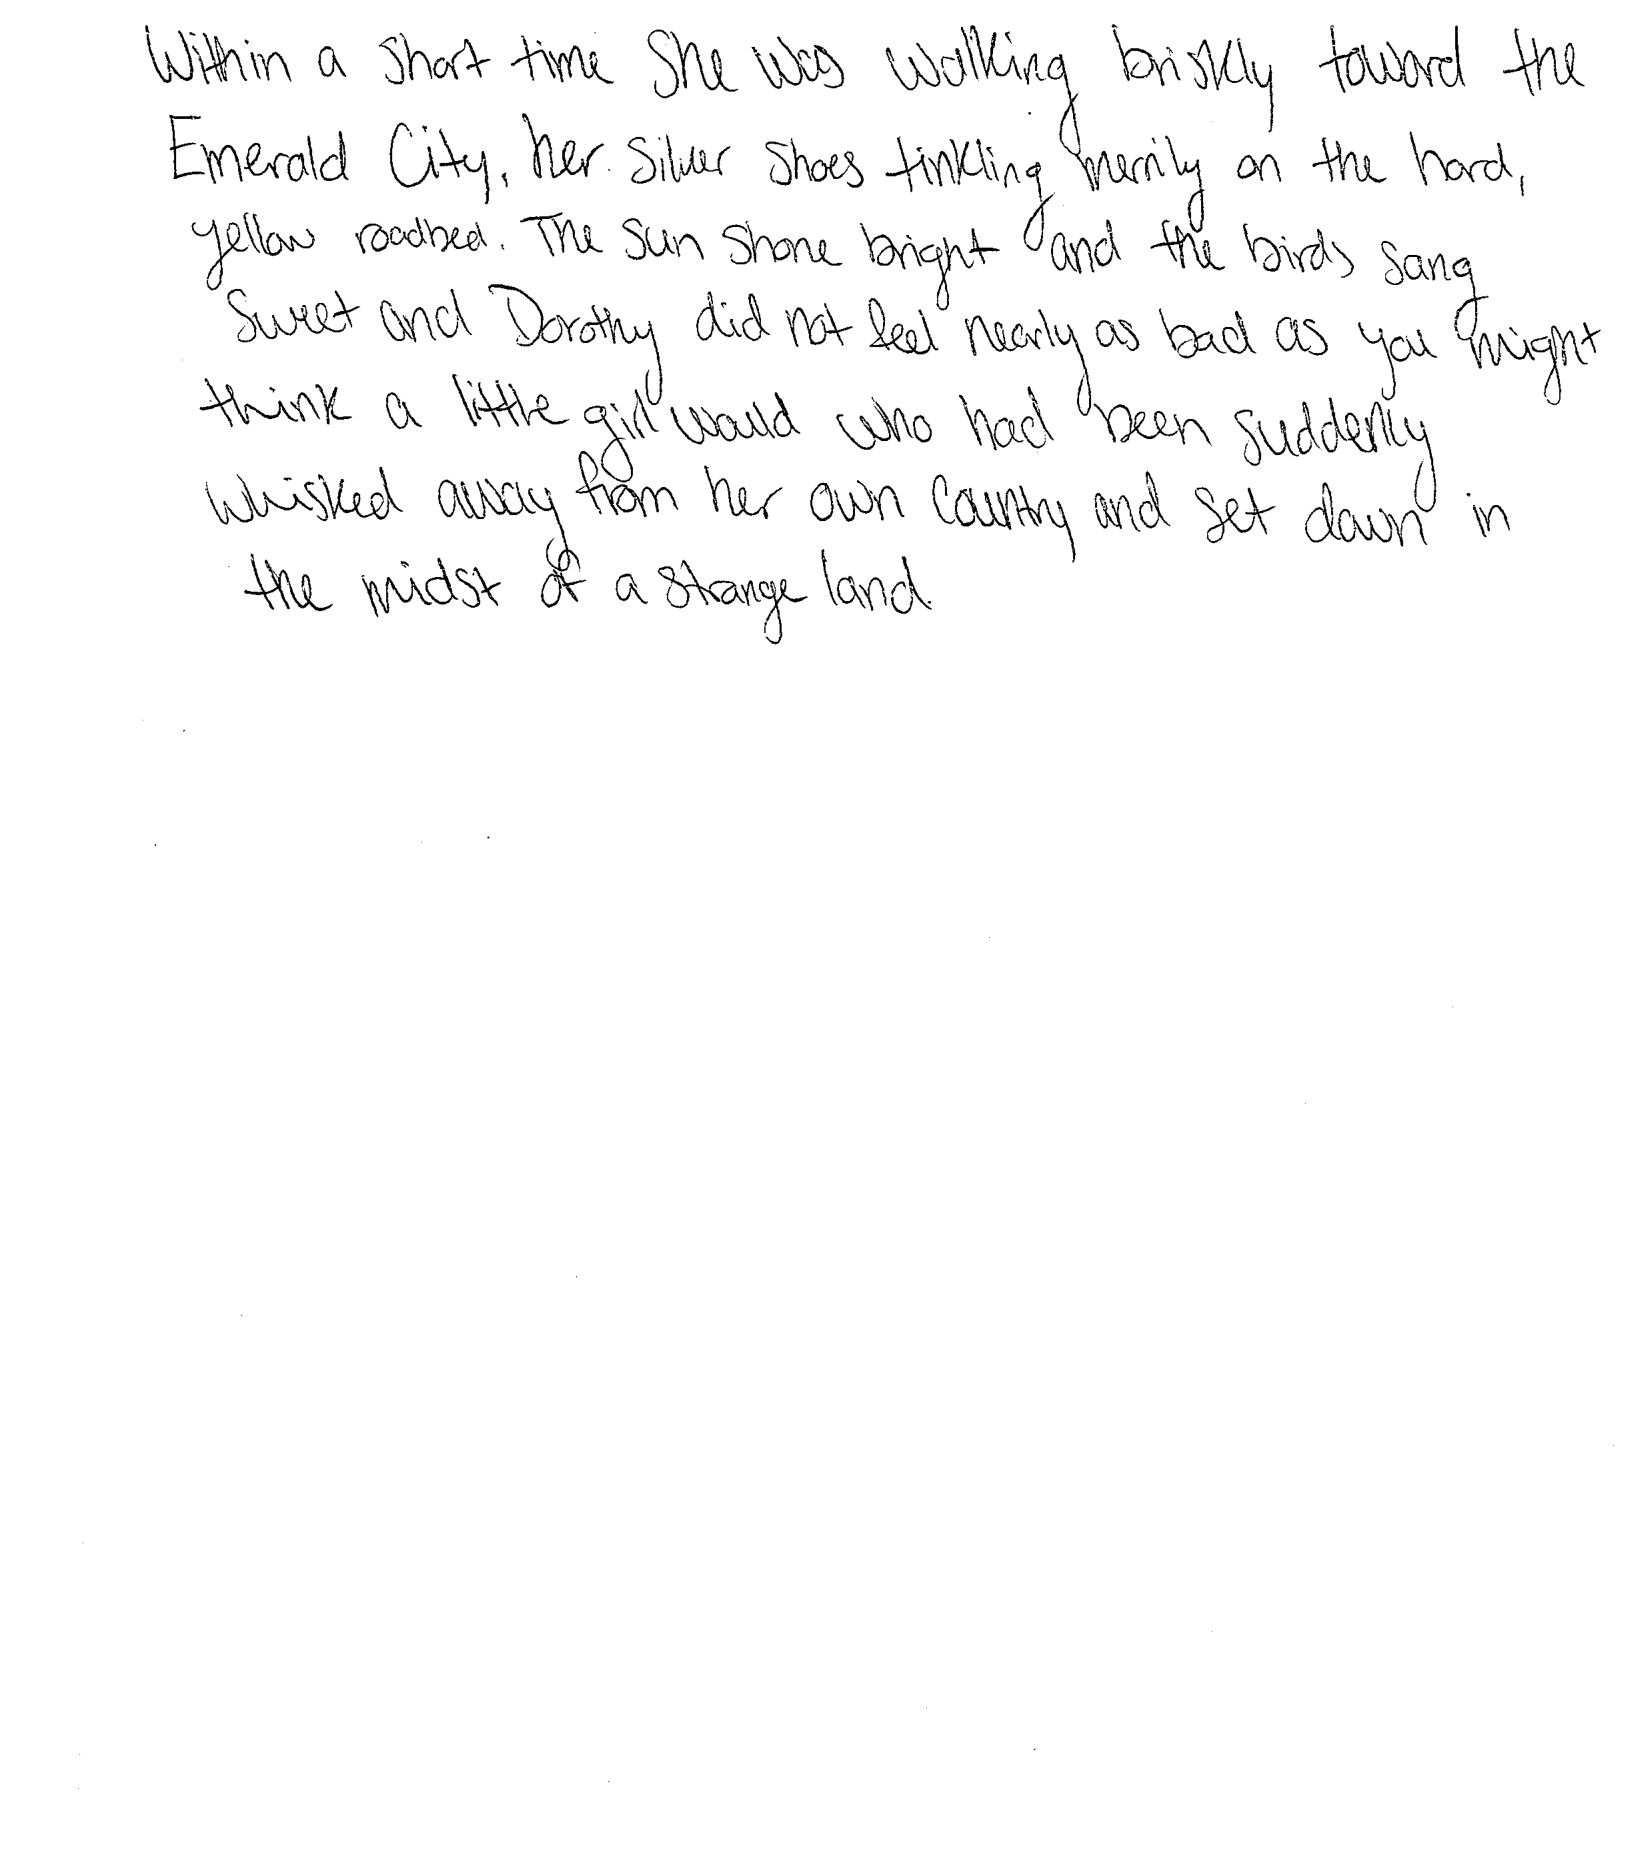 Within a short time she was walking briskly toward the
Emerald City, her silver shoes tinkling merrily on the hard,
yellow roadbed. The sun shone bright and the birds sang
sweet and Dorothy did not feel nearly as bad as you might
think a little girl would who had been suddenly
whisked away from her own country and set down in
the midst of a strange land.